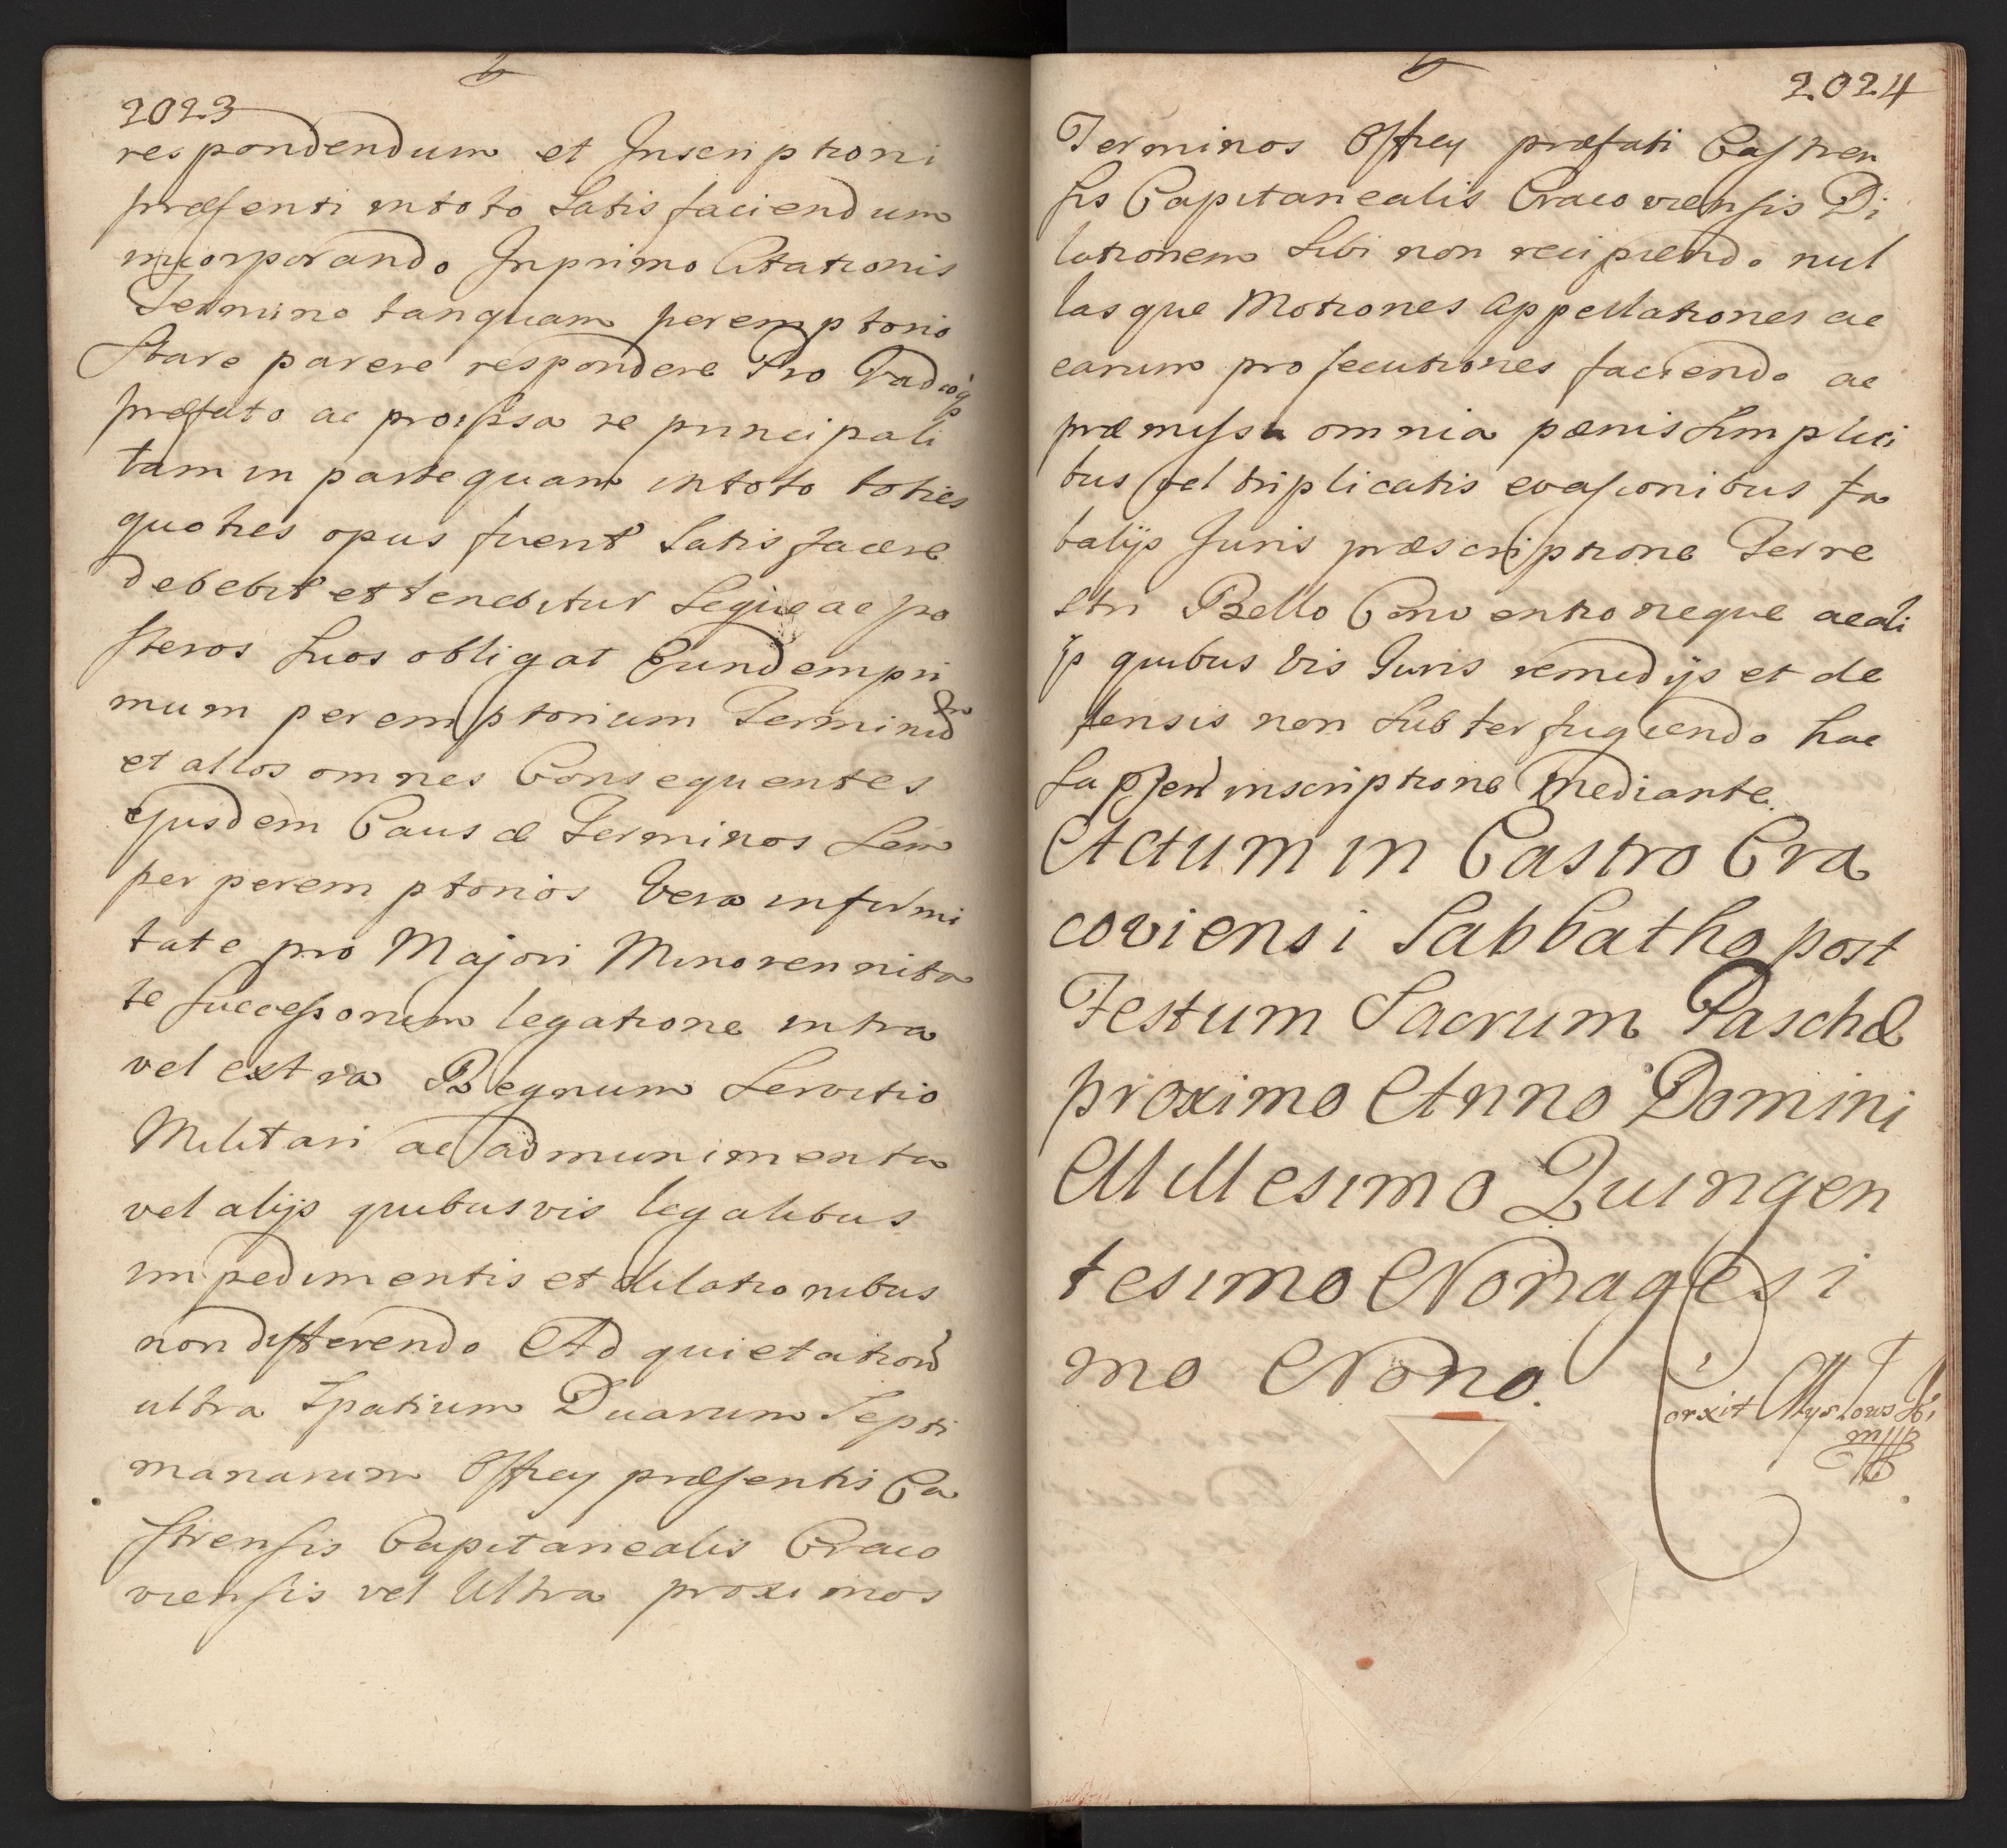 2023
respondendum et Inscriptioni
præsenti intoto Satis faciendum
incorporando Inprimo Citationis
Termino tanquam peremptorio
Stare parere respondere Pro Vadioq
præfato ac proipsa re principali
tam in parte quam intoto toties
quoties opus fuerit Satis facere
debebit et tenebitur Seque ac po
steros Suos obligat Eundem pri
mum peremptorium Terminũ
et alios omnes Consequentes
ejusdem Causæ Terminos Sem
per peremptorios Vera infirmi
tate pro Majori Minorennita
te successorum legatione intra
vel extra Regnum Servitio
Militari ac ad munimenta
vel alijs quibusvis legalibus
impedimentis et dilationibus
non differendo Ad quietationẽ
ultra Spatium Duarum Septi
manarum Offcy præsentis Ca
strensis Capitanealis Craco
viensis vel Ultra proximos
2024
Terminos Offcy præfati Castren
sis Capitanealis Cracoviensis Di
lationem Sibi non recipiendo nul
lasque Motiones Appellationes ac
earum prosecutiones faciendo ac
præmissa omnia pænis Simplici
bus vel triplicatis evasionibus fa
talijs Juris præscriptione Terre
stri Bello Conventione que ac ali
js quibus Vis Juris remedijs et de
fensis non Subter fugiendo hac
Sa pñti inscriptione Mediante.
Actum in Castro Cra
coviensi Sabbatho post
Festum Sacrum Paschæ
proximo Anno Domini
Millesimo Quingen
tesimo Nonagesi
mo Nono.
orxit Myslowski
mpp